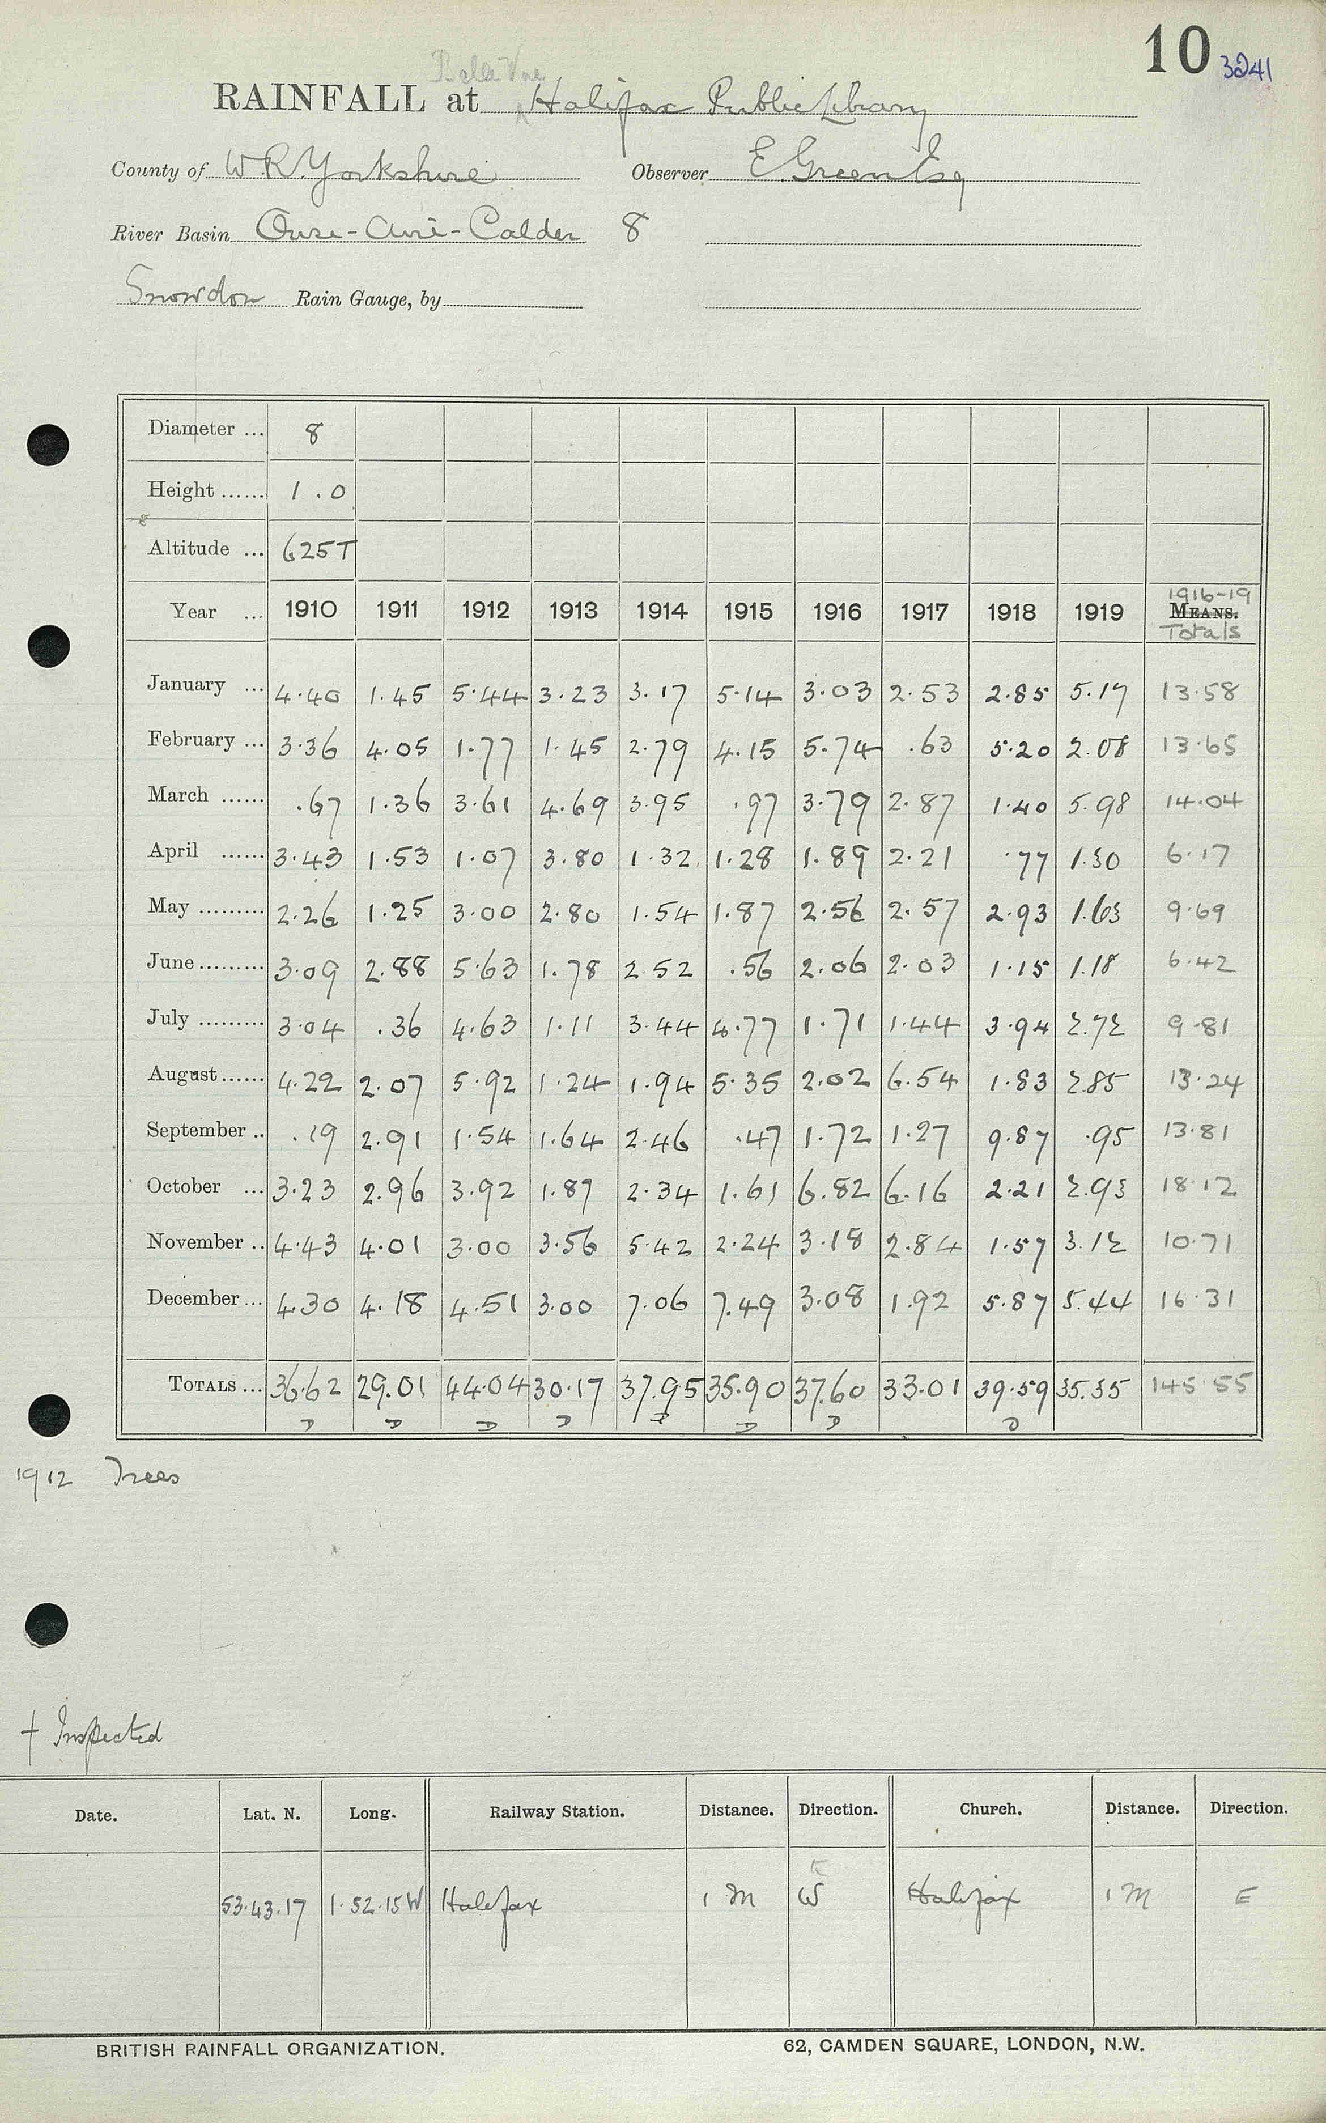 10 3241
Belle Vue
RAINFALL at Halifax Public Library
County of W.R. Yorkshire Observer E. Green Esq
River Basin Ouse-Aire-Calder 8
Snowdon Rain Gauge, by
Diameter ... 8
Height ...... 1.0
Altitude ... 625T
1916-19
Year ... 1910 1911 1912 1913 1914 1915 1916 1917 1918 1919 MEANS.
Totals
January ... 4.40 1.45 5.44 3.23 3.17 5.14 3.03 2.53 2.85 5.17 13.58
February ... 3.36 4.05 1.77 1.45 2.79 4.15 5.74 .63 5.20 2.08 13.65
March ...... .67 1.36 3.61 4.69 3.95 .97 3.79 2.87 1.40 5.98 14.04
April ...... 3.43 1.53 1.07 3.80 1.32 1.28 1.89 2.21 .77 1.30 6.17
May ......... 2.26 1.25 3.00 2.80 1.54 1.87 2.56 2.57 2.93 1.63 9.69
June ......... 3.09 2.88 5.63 1.78 2.52 .56 2.06 2.03 1.15 1.18 6.42
July ......... 3.04 .36 4.63 1.11 3.44 4.77 1.71 1.44 3.94 2.72 9.81
August ...... 4.22 2.07 5.92 1.24 1.94 5.35 2.02 6.54 1.83 2.85 13.24
September .. .19 2.91 1.54 1.64 2.46 .47 1.72 1.27 9.87 .95 13.81
October ... 3.23 2.96 3.92 1.87 2.34 1.61 6.82 6.16 2.21 2.93 18.12
November .. 4.43 4.01 3.00 3.56 5.42 2.24 3.18 2.84 1.57 3.12 10.71
December ... 4.30 4.18 4.51 3.00 7.06 7.49 3.08 1.92 5.87 5.44 16.31
TOTALS ... 36.62 29.01 44.04 30.17 37.95 35.90 37.60 33.01 39.59 35.35 145.55
D D D D D D D D
1912 Trees
† Inspected
Date. Lat. N. Long. Railway Station. Distance. Direction. Church. Distance. Direction.
E
53.43.17 1.52.15W Halifax 1 M W Halifax 1 M E
BRITISH RAINFALL ORGANIZATION. 62, CAMDEN SQUARE, LONDON, N.W.